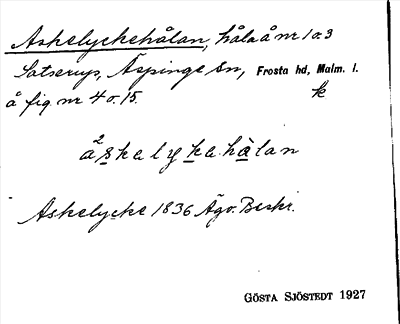 Askelyckehålan, håla å nr 1 o. 3
Satserup, Äspinge sn, Frosta hd, Malm. l.
å fig nr 4 o. 15. k
å²skelyka·hàlan
Askelycke 1836 Ägo. Beskr.
GÖSTA SJÖSTEDT 1927